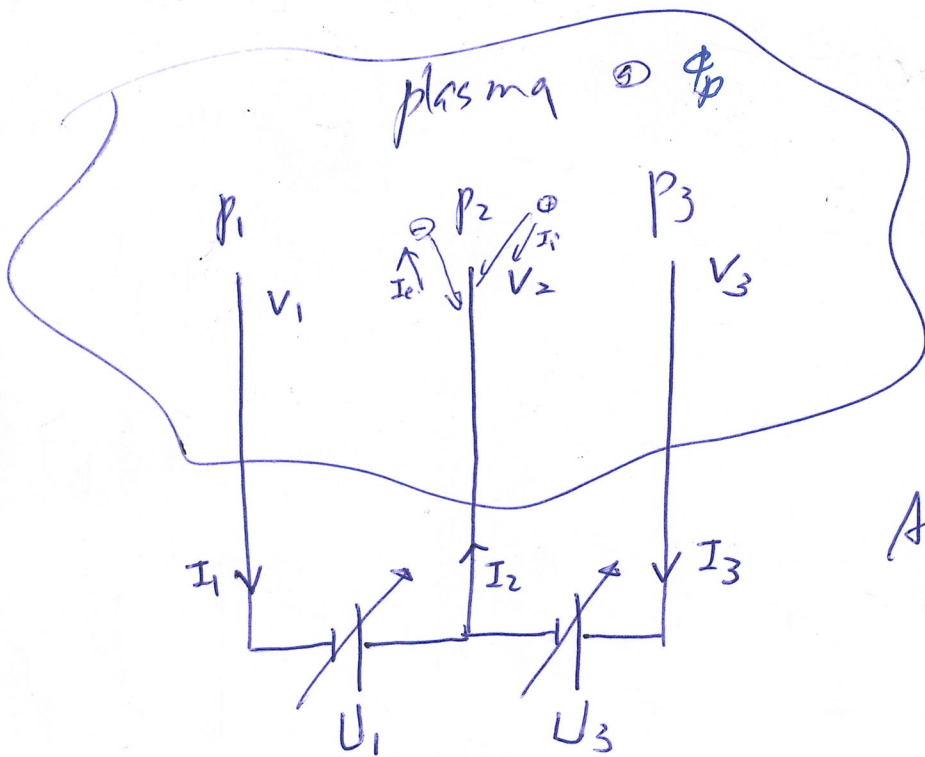 plasma ⊕ φp
P1 P2 ⊕ P3
⊖ Ie Ii
V1 V2 V3
A
I1 I2 I3
U1 U3